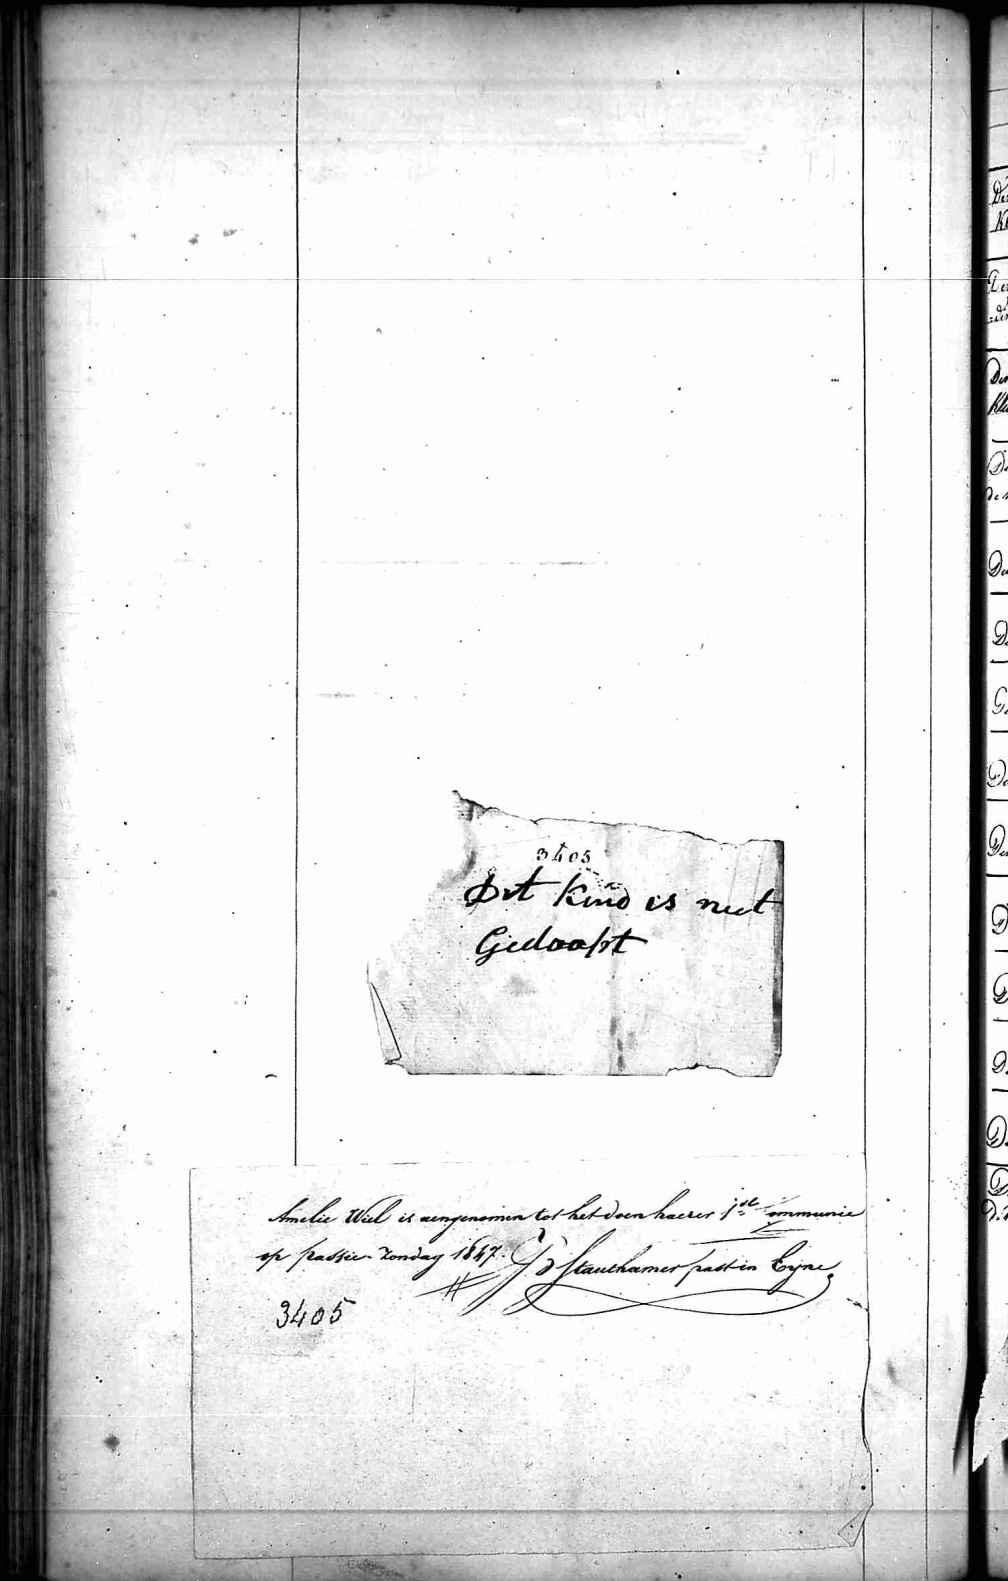 3405
Dit Kind is niet
Gedoopt
Amelie Wiel is aengenomen tot het doen haerer 1ste Communie
op passie-zondag 1847.
Stauthamer past in Eyne
3405